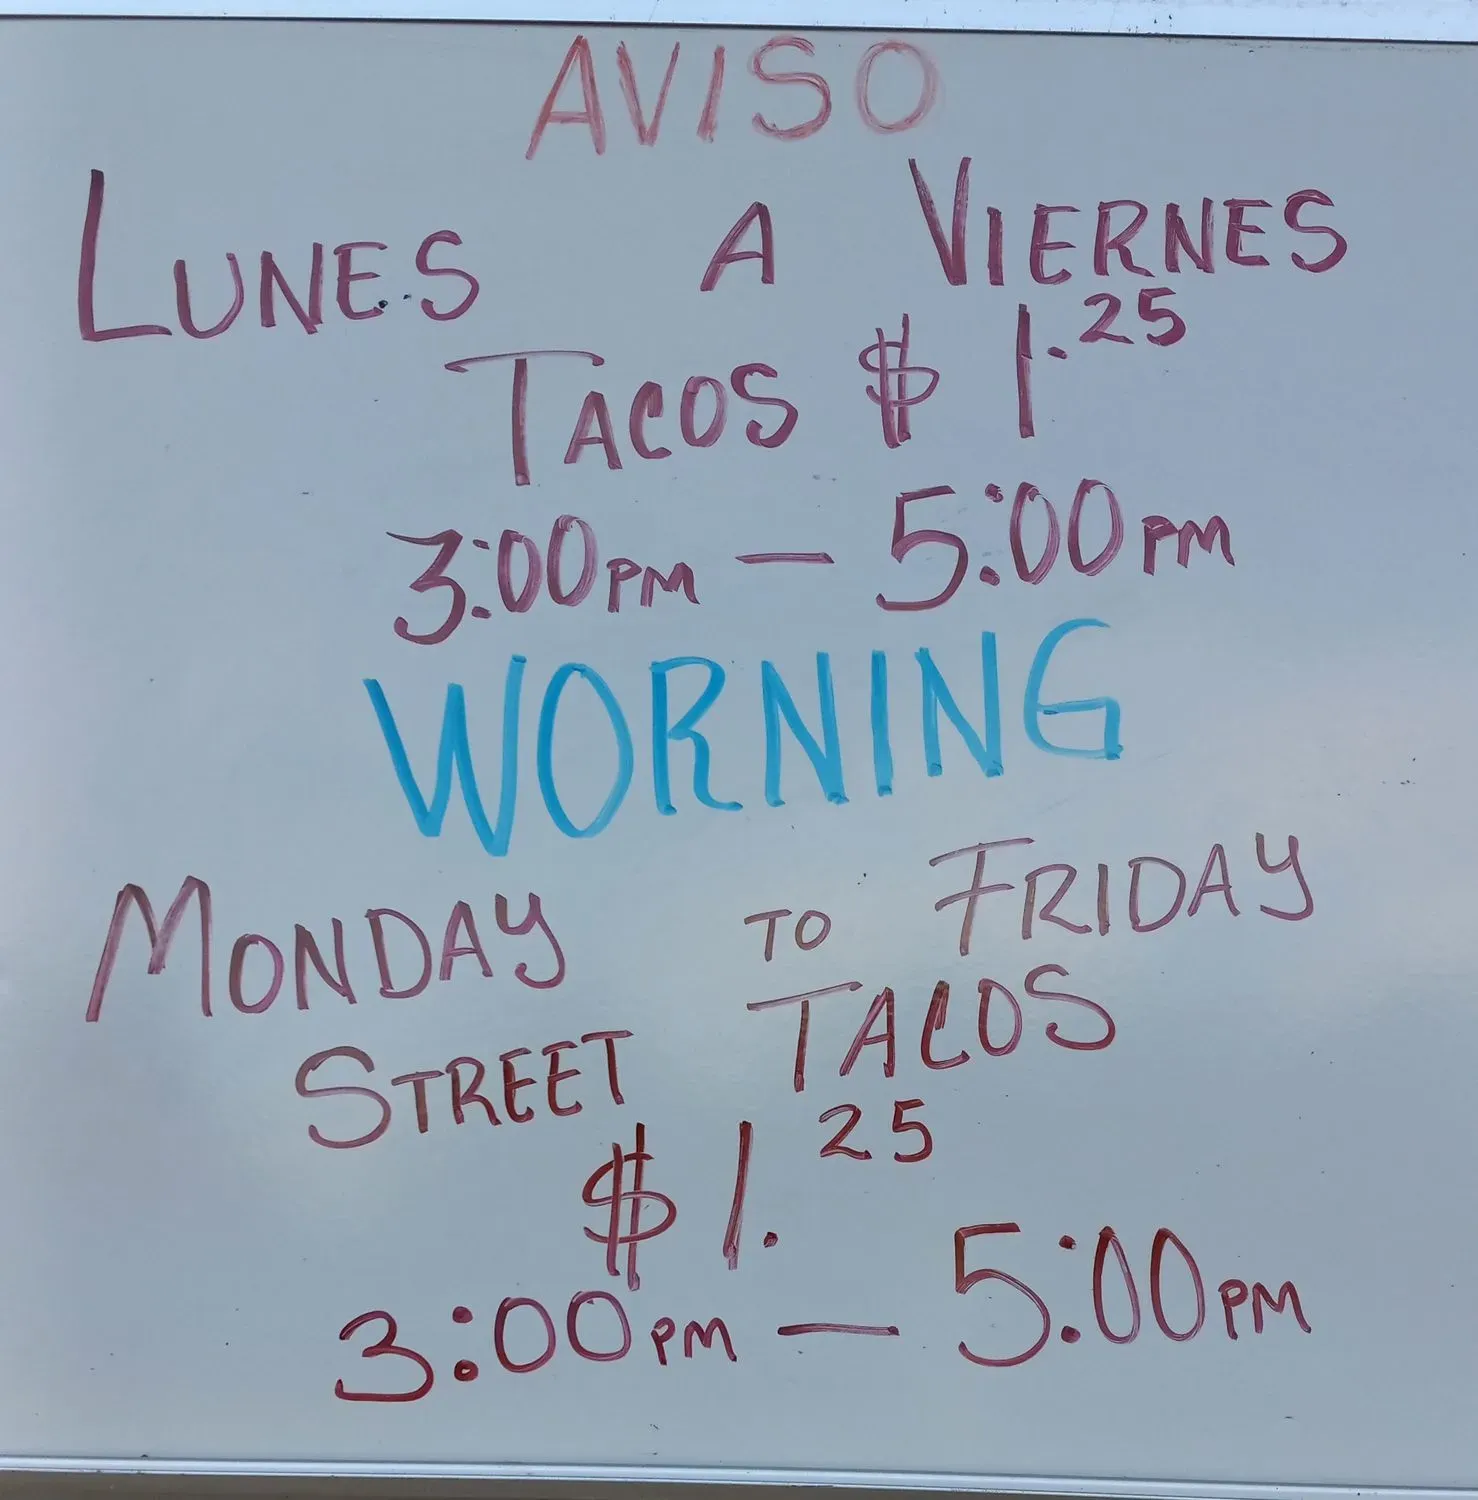 AVISO
LUNES A VIERNES
TACOS $1.25
3:00PM — 5:00PM
WORNING
MONDAY TO FRIDAY
STREET TACOS
$1.25
3:00PM — 5:00PM